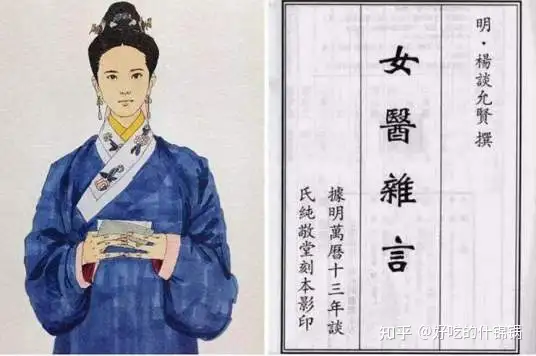 明·楊談允賢 撰
女醫雜言
據明萬曆十三年談
氏純敬堂刻本影印
知乎 @好吃的什锦锅